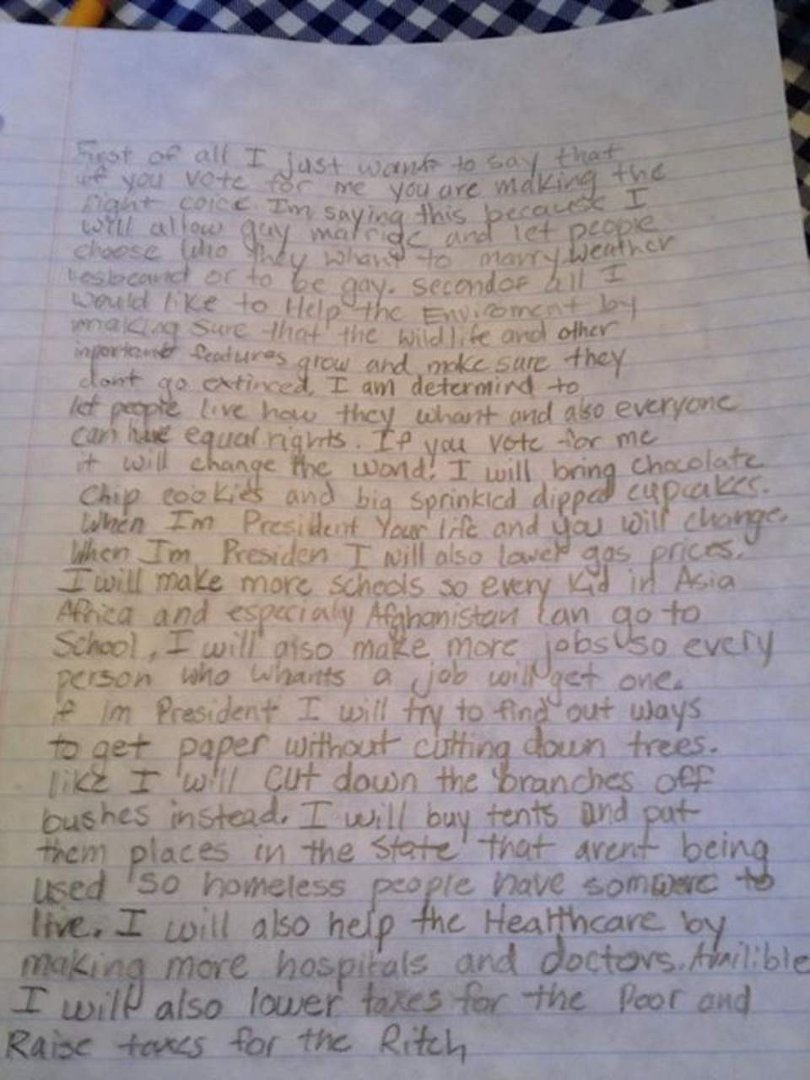 First of all I just want to say that
if you vote for me you are making the
right coice Im saying this because I
will allow guy matrige and let people
choose who they whant to marry, weather
lesbeand or to be gay. second of all I
would like to Help the Enviroment by
making sure that the wildlife and other
inportant features grow and make sure they
dont go extinced. I am determind to
let people live how they whant and also everyone
can have equal rights. If you vote for me
it will change the world! I will bring chocolate
Chip cookies and big sprinkled dipped cupcakes.
When Im President Your life and you will change.
When Im Presiden I will also lower gas prices.
I will make more schools so every kid in Asia
Africa and especialy Afghanistan can go to
School. I will also make more jobs so every
person who whants a job will get one.
if im President I will try to find out ways
to get paper without cutting down trees.
like I will cut down the branches off
bushes instead. I will buy tents and put
them places in the State that arent being
used so homeless people have somwere to
live. I will also help the Healthcare by
making more hospitals and doctors. Avilible
I will also lower taxes for the Poor and
Raise taxes for the Ritch